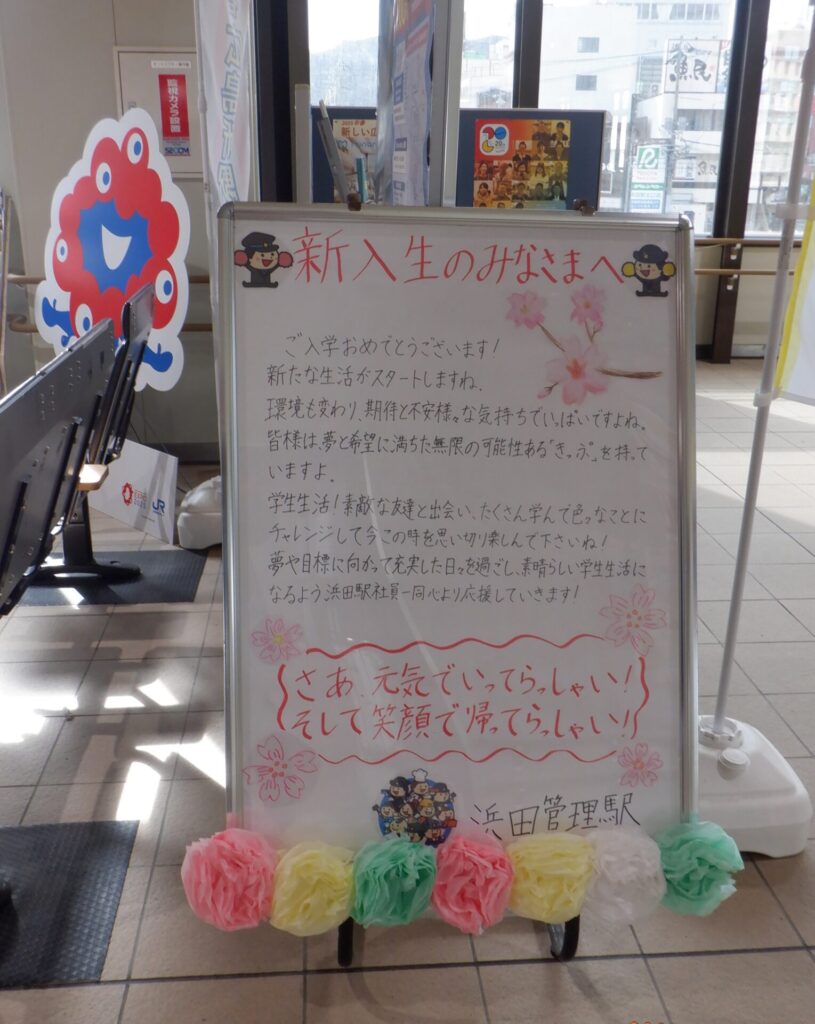 監視カメラ設置
SECOM
新しい広
新入生のみなさまへ
ご入学おめでとうございます!
新たな生活がスタートしますね.
環境も変わり、期待と不安様々な気持ちでいっぱいですよね。
皆様は、夢と希望に満ちた無限の可能性ある「きっぷ」を持って
いますよ.
学生生活!素敵な友達と出会い、たくさん学んで色々なことに
チャレンジして今この時を思い切り楽しんで下さいね!
夢や目標に向かって充実した日々を過ごし、素晴らしい学生生活に
なるよう浜田駅社員一同心より応援していきます!
さあ、元気でいってらっしゃい!
そして笑顔で帰ってらっしゃい!!
浜田管理駅
JR